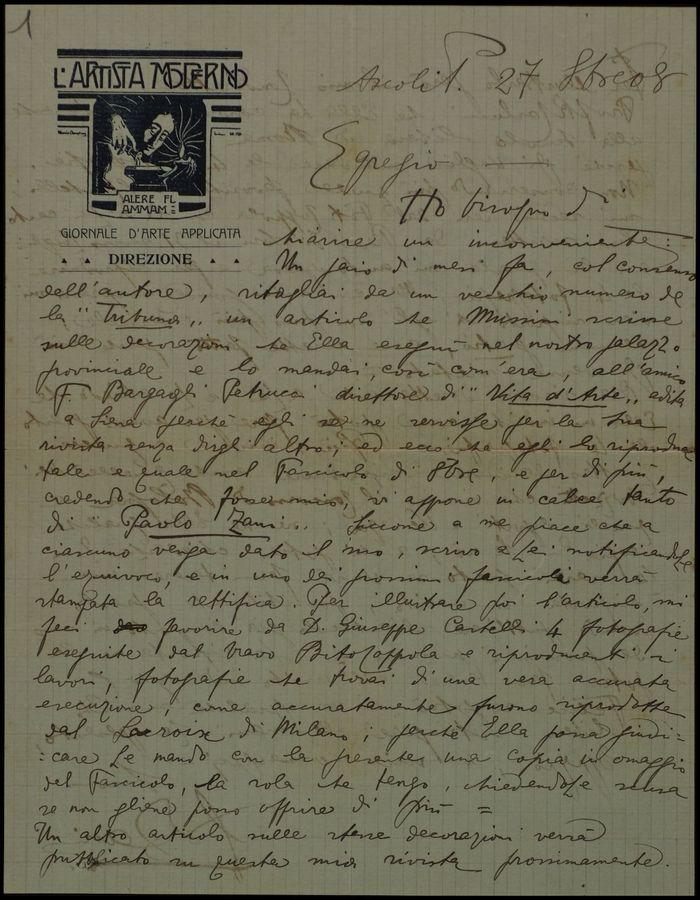 1
L'ARTISTA MODERNO
ALERE FL
AMMAM
GIORNALE D'ARTE APPLICATA
DIREZIONE
Ascoli P. 27 8bre 08
Egregio
Ho bisogno di
chiarire un inconveniente:
Un paio di mesi fa, col consenso
dell'autore, ritagliai da un vecchio numero de
la "Tribuna" un articolo che Mussini scrisse
sulle decorazioni che Ella eseguì nel nostro palazzo
provinciale e lo mandai, così com'era, all'amico
F. Bargagli Petrucci direttore di "Vita d'Arte" edita
a Siena perchè egli se ne servisse per la sua
rivista senza dirgli altro; ed ecco che egli lo riproduce
tale e quale nel Fascicolo di 8bre, e per di più,
credendo che fosse mio, vi appone in calce tanto
di Paolo Zani.. Siccome a me piace che a
ciascuno venga dato il suo, scrivo a Lei notificandole
l'equivoco, e in uno dei prossimi fascicoli verrà
stampata la rettifica. Per illustrare poi l'articolo, mi
feci favorire da D. Giuseppe Castelli 4 fotografie
eseguite dal bravo e riproducenti i
lavori, fotografie che trovai di una vera accurata
esecuzione, come accuratamente furono riprodotte
dal Lacroix di Milano; perchè Ella possa giudi=
=care Le mando con la presente una copia in omaggio
del Fascicolo, la sola che tengo, chiedendole scusa
se non gliene posso offrire di più =
Un altro articolo sulle stesse decorazioni verrà
pubblicato su questa mia rivista prossimamente.